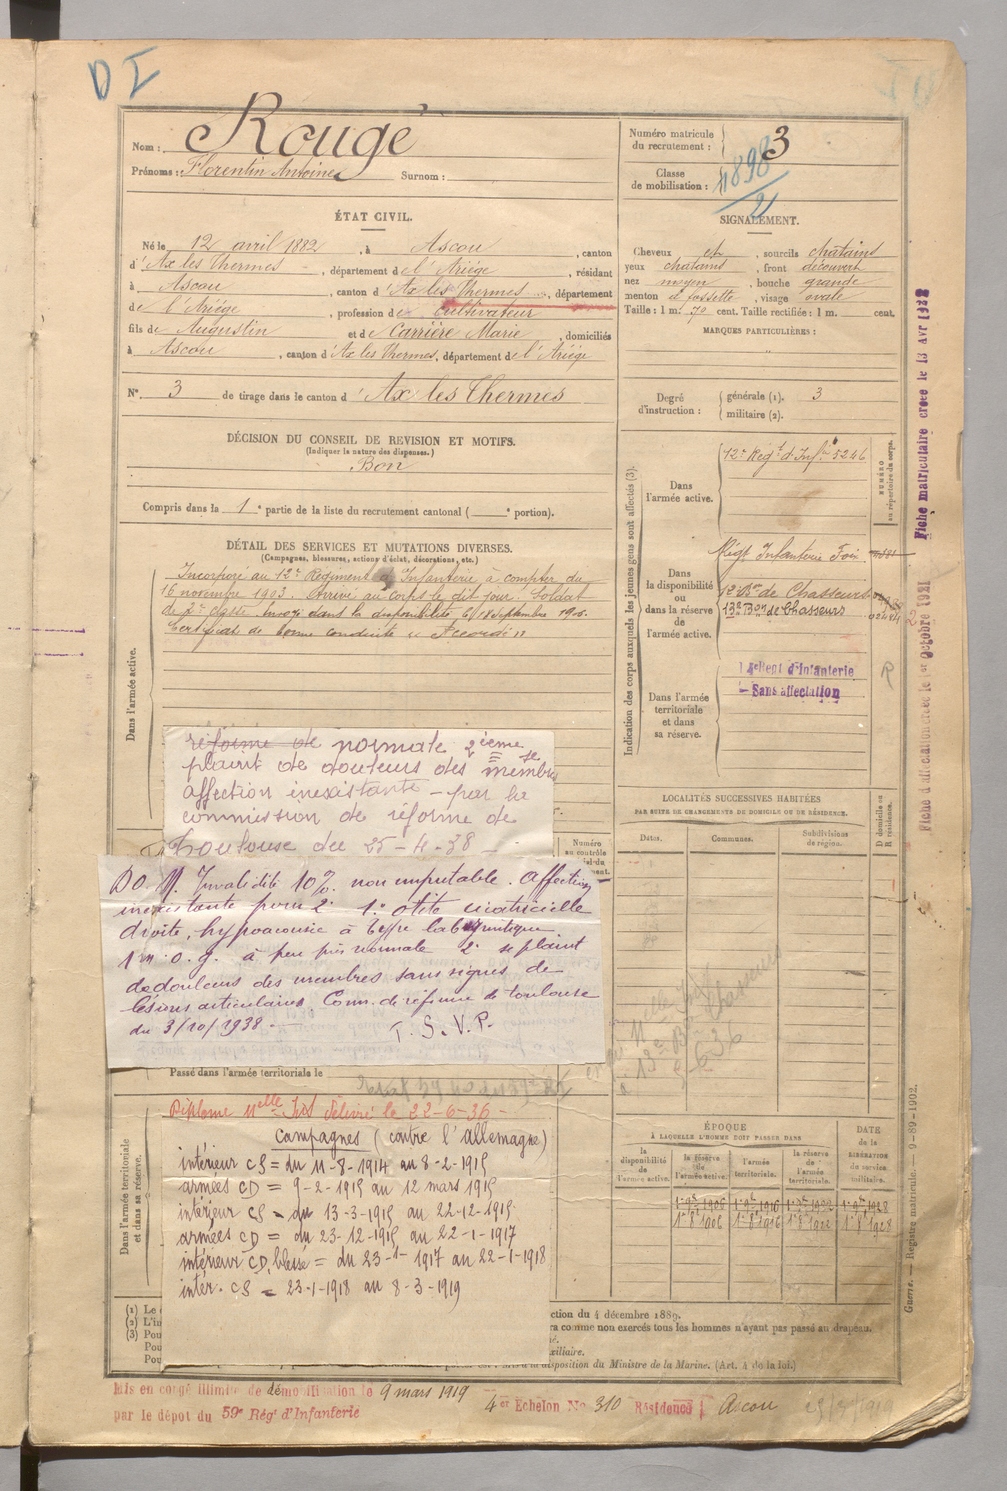 D I
Nom : Rougé
Prénoms : Florentin Antoine Surnom :
Numéro matricule du recrutement : 3
Classe de mobilisation : 1898/2
ÉTAT CIVIL.
Né le 12 avril 1882, à Ascou, canton
d'Ax les Thermes, département de l'Ariège, résidant
à Ascou, canton d'Ax les Thermes, département
de l'Ariège, profession de cultivateur
fils de Augustin et de Carrière Marie, domiciliés
à Ascou, canton d'Ax les Thermes, département de l'Ariège
N° 3 de tirage dans le canton d'Ax les Thermes
SIGNALEMENT.
Cheveux et, sourcils chatains
yeux chatains, front découvert
nez moyen, bouche grande
menton à fossette, visage ovale
Taille : 1 m. 70 cent. Taille rectifiée : 1 m. cent.
MARQUES PARTICULIÈRES :
"
Degré d'instruction : générale (1). 3
militaire (2).
DÉCISION DU CONSEIL DE REVISION ET MOTIFS.
(Indiquer la nature des dispenses.)
Bon
Compris dans la 1e partie de la liste du recrutement cantonal ( e portion).
DÉTAIL DES SERVICES ET MUTATIONS DIVERSES.
(Campagnes, blessures, actions d'éclat, décorations, etc.)
Dans l'armée active.
Incorporé au 12e Régiment d'Infanterie à compter du
16 novembre 1903. Arrivé au corps le dit jour. Soldat
de 2e classe. Envoyé dans la disponibilité le 18 septembre 1906.
Certificat de bonne conduite "Accordé"
Indication des corps auxquels les jeunes gens sont affectés (3).
NUMÉRO au répertoire du corps.
Dans l'armée active.
12e Régt d'Infie 5246
Dans la disponibilité ou dans la réserve de l'armée active.
Régt Infanterie Foix
12e Bon de Chasseurs
13e Bon de Chasseurs
Dans l'armée territoriale et dans sa réserve.
d'Infanterie
Sans affectation
R
Fiche matriculaire créée le 13 avr 1932
Fiche d'affectation créée le 1er Octobre 1921
réforme de normale 2ième
plaint de douleurs des membres
affection inexistante - par la
commission de réforme de
Toulouse du 25-4-38 -
Invalidité 10% non imputable. Affection
inexistante pour 2° 1° otite cicatricielle
droite, hypoacousie à type labyrintique
1m. O. g. à peu près normale 2° se plaint
de douleurs des membres sans signes de
lésions articulaires. Com. de réforme de Toulouse
du 3/10/1938 -
T. S. V. P.
Numéro au contrôle
LOCALITÉS SUCCESSIVES HABITÉES
PAR SUITE DE CHANGEMENTS DE DOMICILE OU DE RÉSIDENCE.
Dates. Communes. Subdivisions de région. D domicile ou R résidence.
13e Bon Chasseurs
Passé dans l'armée territoriale le
Dans l'armée territoriale et dans sa réserve.
Diplome délivré le 22-6-36 -
Campagnes (contre l'allemagne)
intérieur CS = du 11-8-1914 au 8-2-1915
armées CD = 9-2-1915 au 12 mars 1915
intérieur CS = du 13-3-1915 au 22-12-1915
armées CD = du 23-12-1915 au 22-1-1917
intérieur CD, blessé = du 23-1-1917 au 22-1-1918
intér. CS = 23-1-1918 au 8-3-1919
ÉPOQUE
À LAQUELLE L'HOMME DOIT PASSER DANS
la disponibilité de l'armée active. la réserve de l'armée active. l'armée territoriale. la réserve de l'armée territoriale.
DATE de la LIBÉRATION du service militaire.
1er 8bre 1906 1er 8bre 1916 1er 8bre 1922 1er 8bre 1928
(1) Le
(2) L'in
(3) Pou
Pou
Pou
ction du 4 décembre 1889.
ra comme non exercés tous les hommes n'ayant pas passé au drapeau.
xiliaire.
disposition du Ministre de la Marine. (Art. 4 de la loi.)
Guerre. — Registre matricule. — 9-89-1902.
Mis en congé illimité de démobilisation le 9 mars 1919 4er Echelon No 310 Résidence Ascou
par le dépot du 59e Régt d'Infanterie